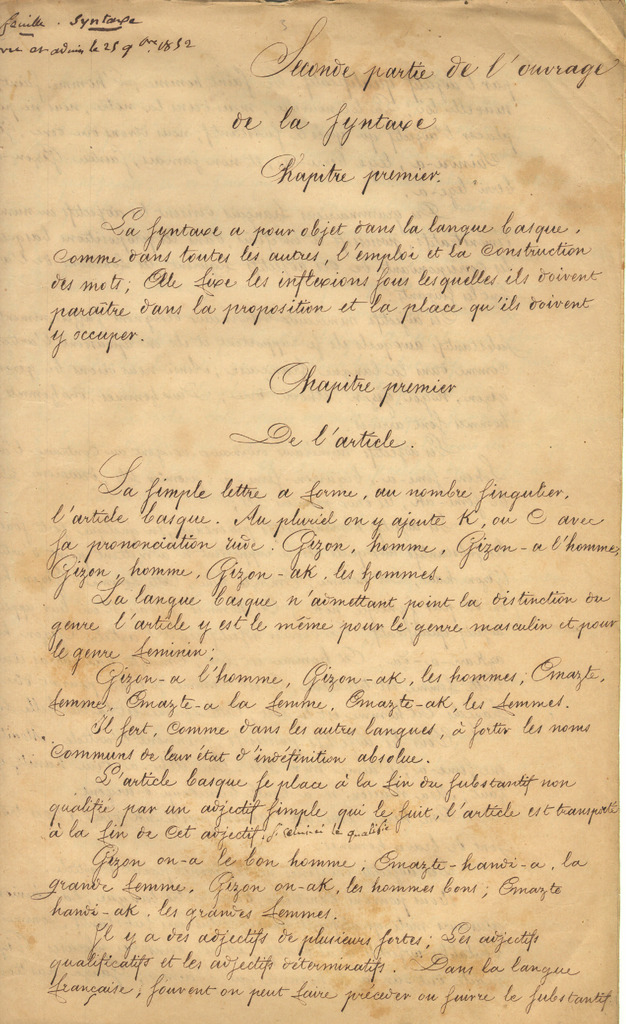 feuille. Syntaxe
vu et admis le 25 9bre 1852
Seconde partie de l'ouvrage
de la Syntaxe
Chapitre premier.
La Syntaxe a pour objet dans la langue basque,
comme dans toutes les autres, l'emploi et la construction
des mots; Elle fixe les inflexions sous lesquelles ils doivent
paraître dans la proposition et la place qu'ils doivent
y occuper.
Chapitre premier
De l'article.
La simple lettre a forme, au nombre singulier,
l'article basque. Au pluriel on y ajoute K, ou C avec
sa prononciation rude. Gizon, homme, Gizon-a l'homme,
Gizon, homme, Gizon-ak, les hommes.
La langue basque n'admettant point la distinction du
genre l'article y est le même pour le genre masculin et pour
le genre féminin;
Gizon-a l'homme, Gizon-ak, les hommes; Emazte,
femme, Emazte-a la femme, Emazte-ak, les femmes.
Il sert, comme dans les autres langues, à sortir les noms
communs de leur état d'indéfinition absolue.
L'article basque se place à la fin du substantif non
qualifié par un adjectif simple qui le suit, l'article est transporté
à la fin de cet adjectif. si celui-ci le qualifie
Gizon on-a le bon homme; Emazte-handi-a, la
grande femme, Gizon on-ak, les hommes bons; Emazte
handi-ak, les grandes femmes.
Il y a des adjectifs de plusieurs sortes; Les adjectifs
qualificatifs et les adjectifs déterminatifs. Dans la langue
française, souvent on peut faire précéder ou suivre le substantif